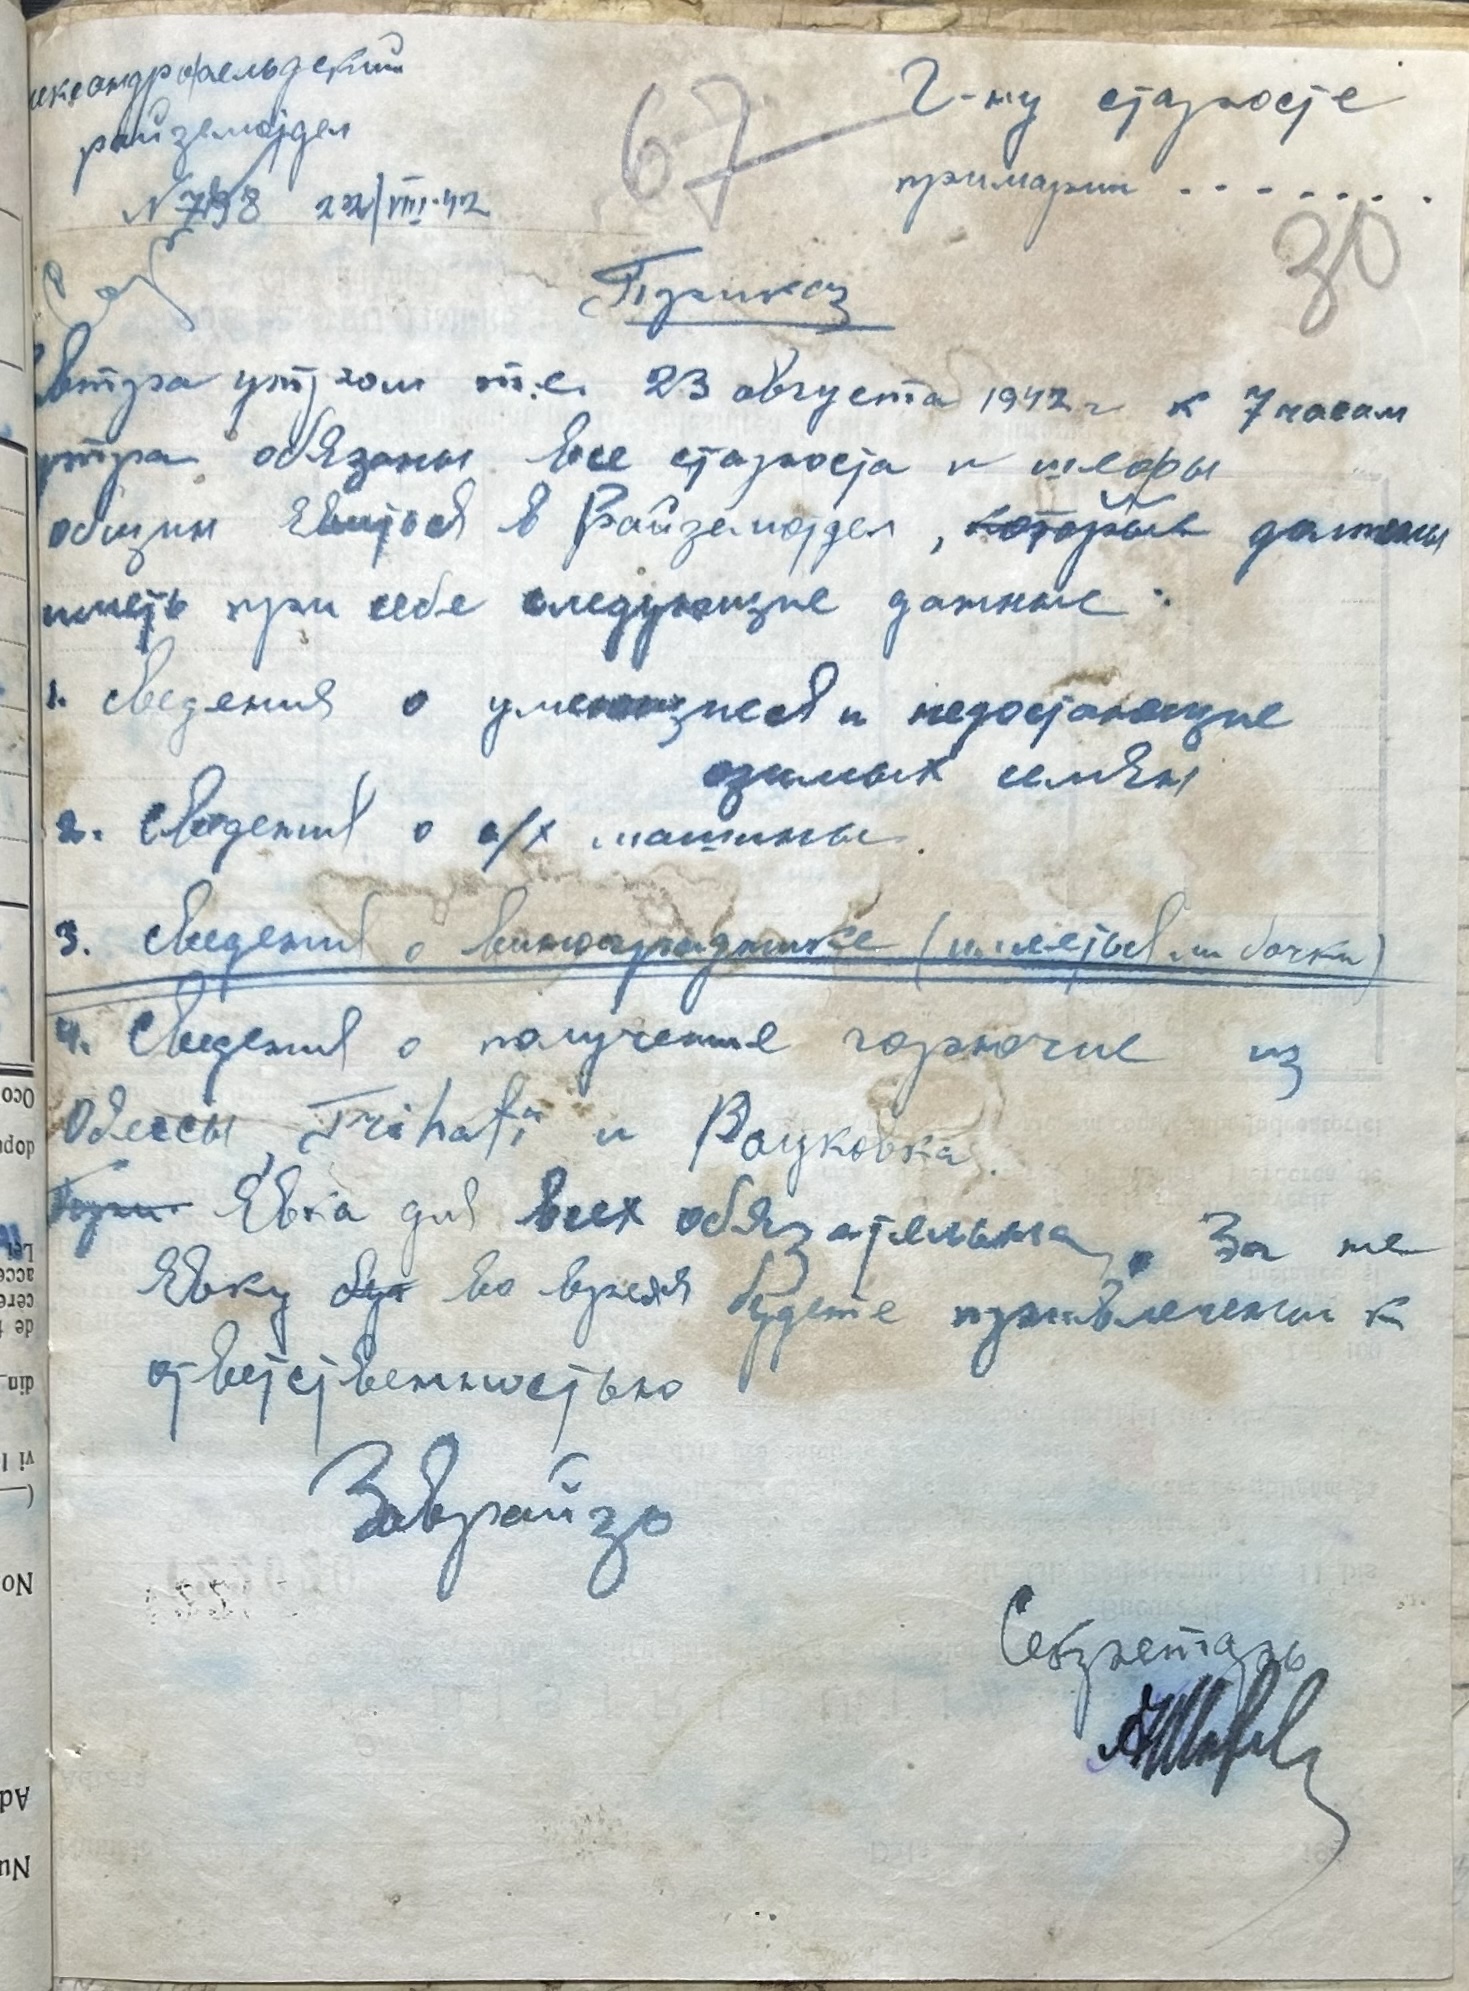 лександрофельдский
райземотдел
N 798 22/VIII-42
67
Г-ну старосте
примарии . . . . . . .
30
Приказ
Завтра утром т.е. 23 августа 1942 г к 7 часам
утра обязаны все староста и шефы
общин явится в Райземотдел, которые должны
иметь при себе следующие данные:
1. Сведения о имеющиеся и недостающие
озимых семян
2. Сведения о с/х машины.
3. Сведения о винограднике (имеется ли бочки)
4. Сведения о получение горючие из
Одессы, Trihati и Рацковка.
При Явка для всех обязательна. За не
явку во время будете привлечены к
ответственностью
Заврайзо
Секретарь